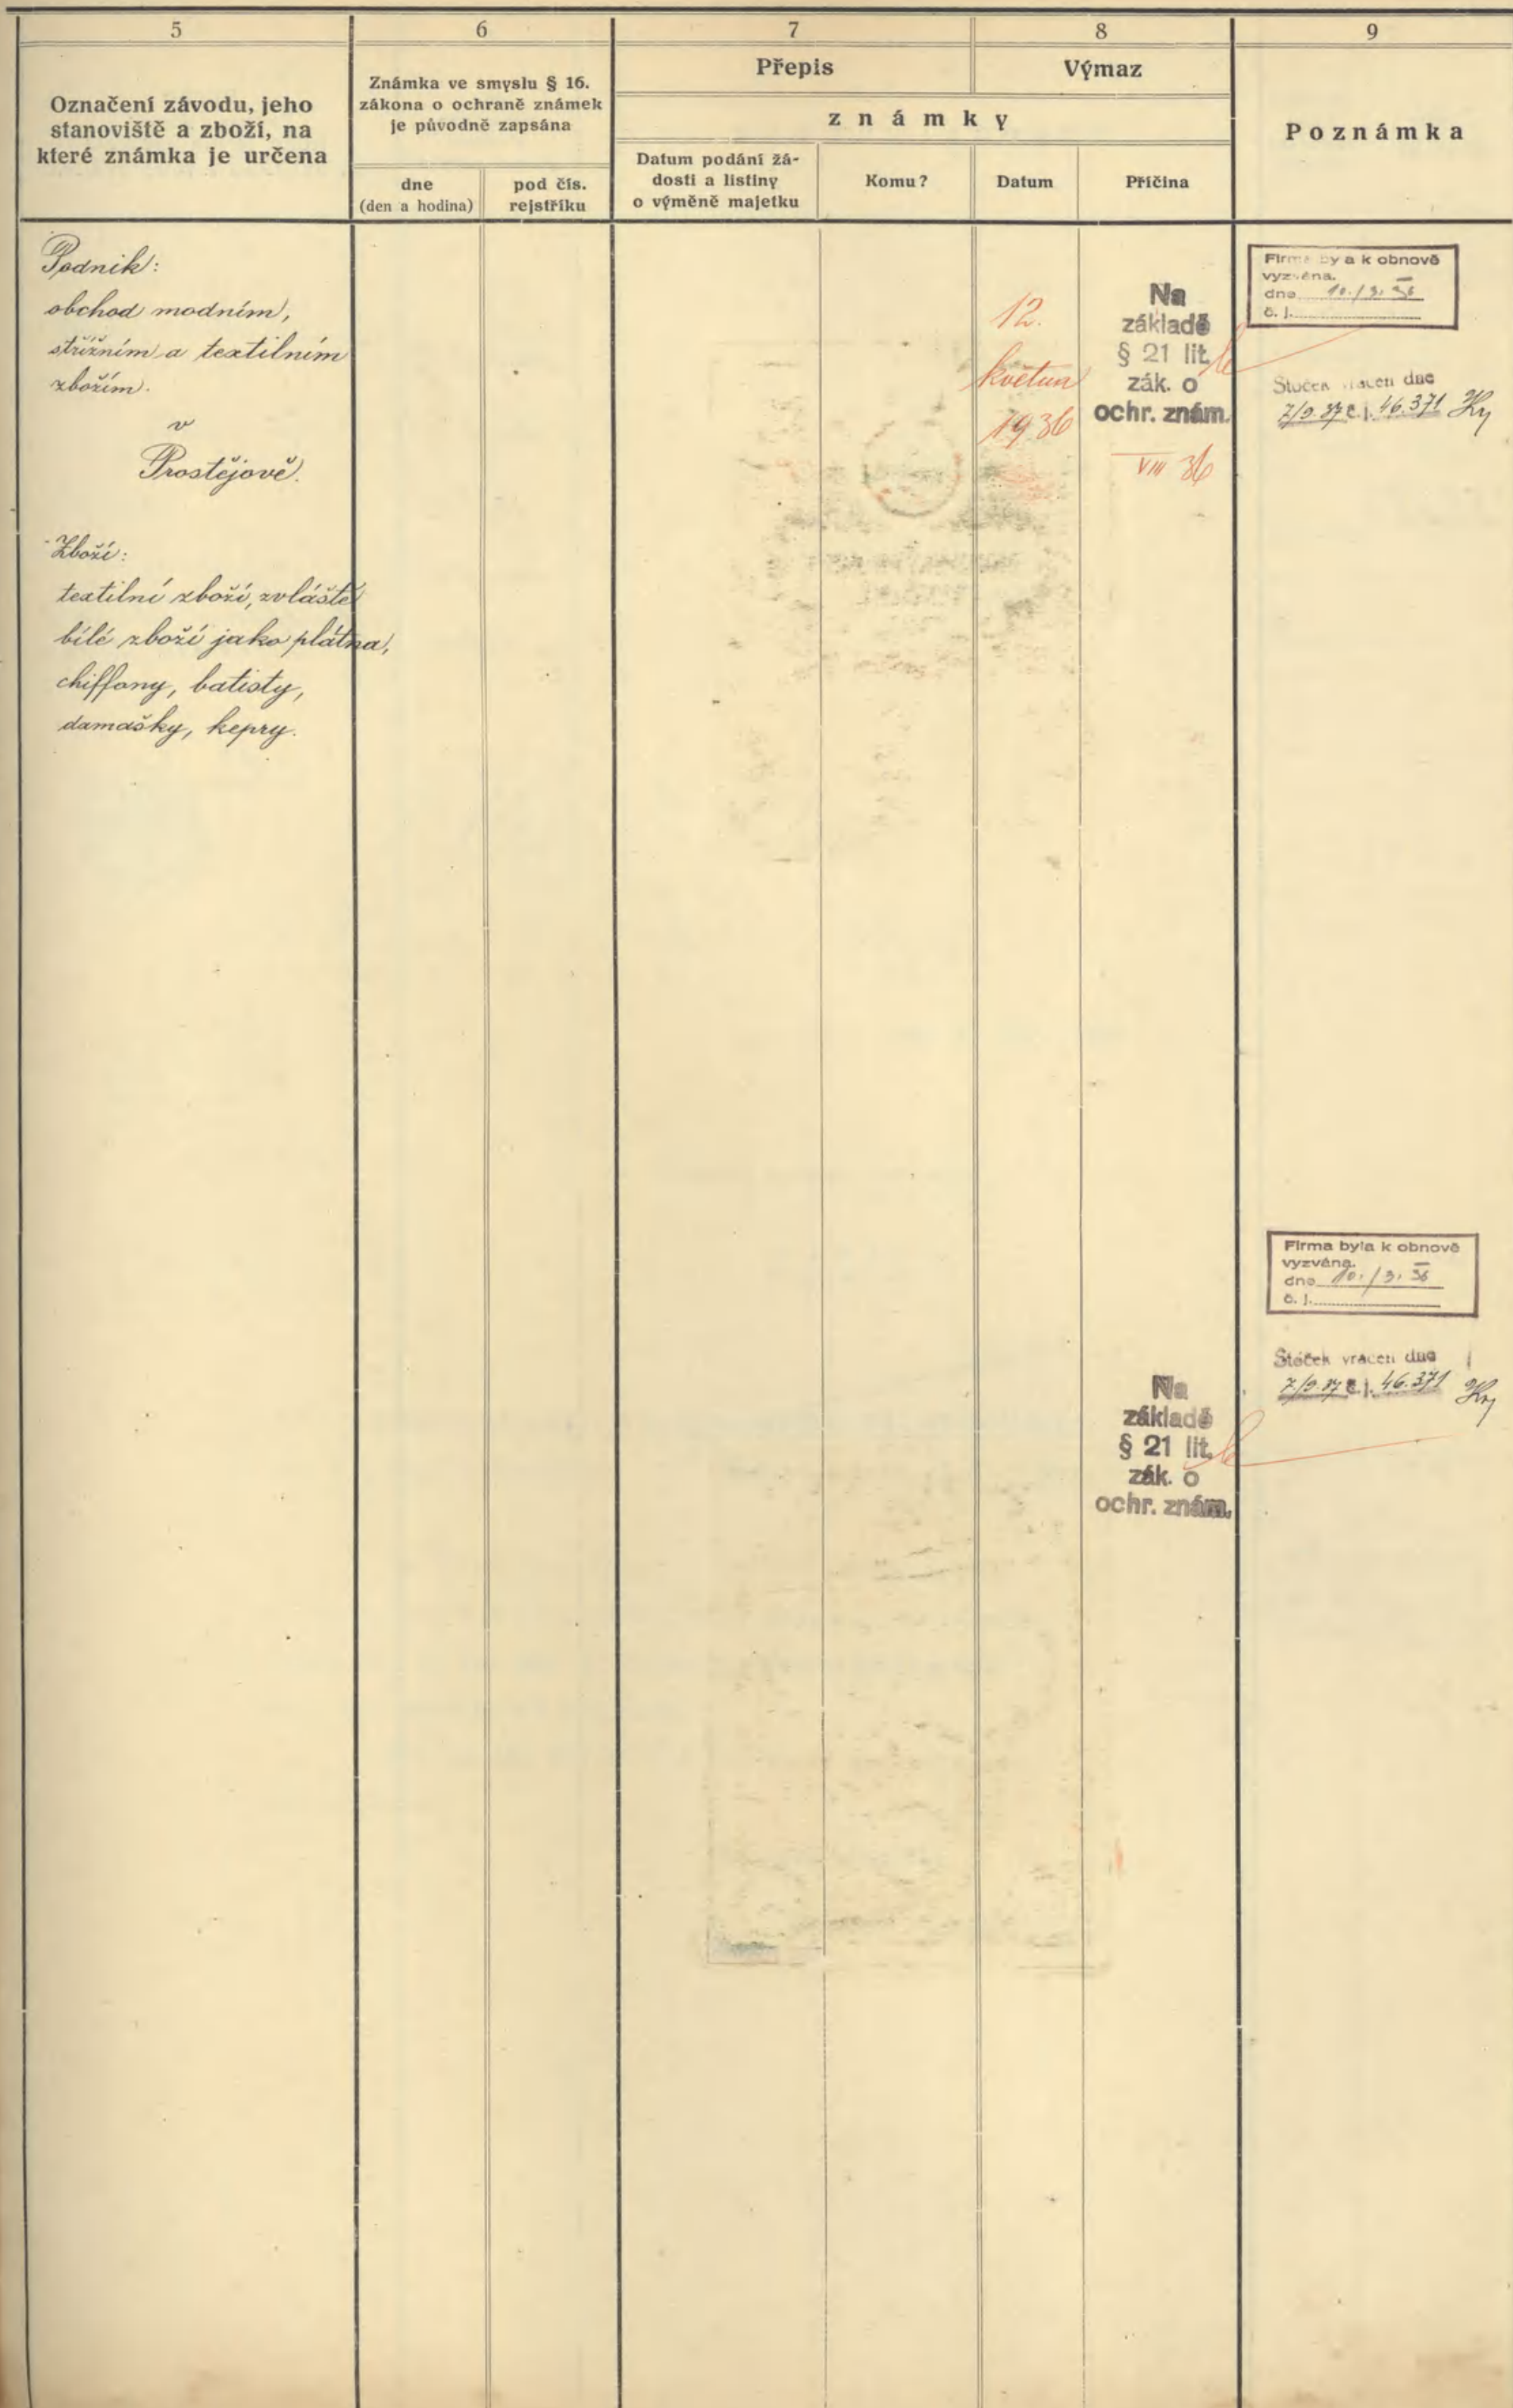 5
6
7
8
9
Označení závodu, jeho
stanoviště a zboží, na
které známka je určena
Známka ve smyslu § 16.
zákona o ochraně známek
je původně zapsána
dne
(den a hodina)
pod čís.
rejstříku
Přepis
Výmaz
známky
Datum podání žá-
dosti a listiny
o výměně majetku
Komu?
Datum
Příčina
Poznámka
Podnik:
obchod modním,
střižním a textilním
zbožím.
v
Prostějově.
Zboží:
textilní zboží, zvláště
bílé zboží jako plátna,
chiffony, batisty,
damašky, kepry.
12.
květun
1936
Na
základě
§ 21 lit. b
zák. o
ochr. znám.
VIII 36
Firma byla k obnově
vyzvána.
dne 10./3. 36
č. j.
Štoček vrácen dne
7/9.37 č.j. 46.371
Firma byla k obnově
vyzvána.
dne 10./3. 36
č. j.
Štoček vrácen dne
7/9.37 č.j. 46.371
Na
základě
§ 21 lit. b
zák. o
ochr. znám.